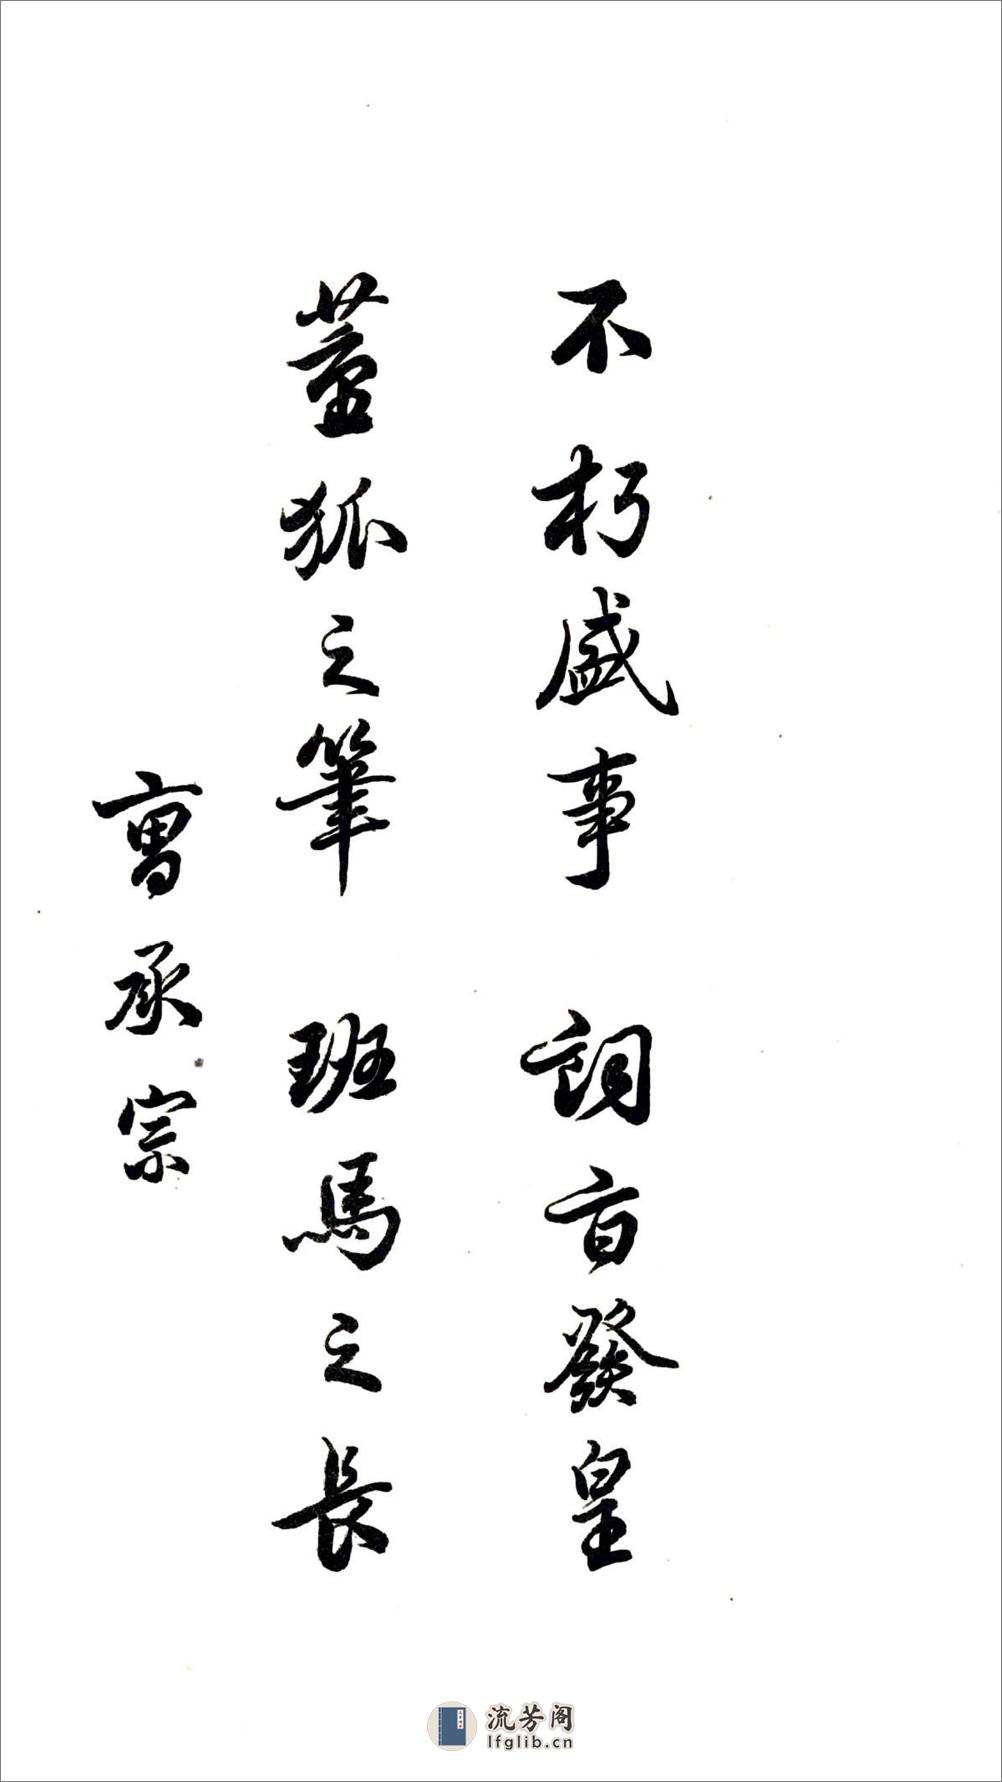 不朽盛事 詞旨發皇
董狐之筆 班馬之長
曹承宗
流芳阁
lfglib.cn